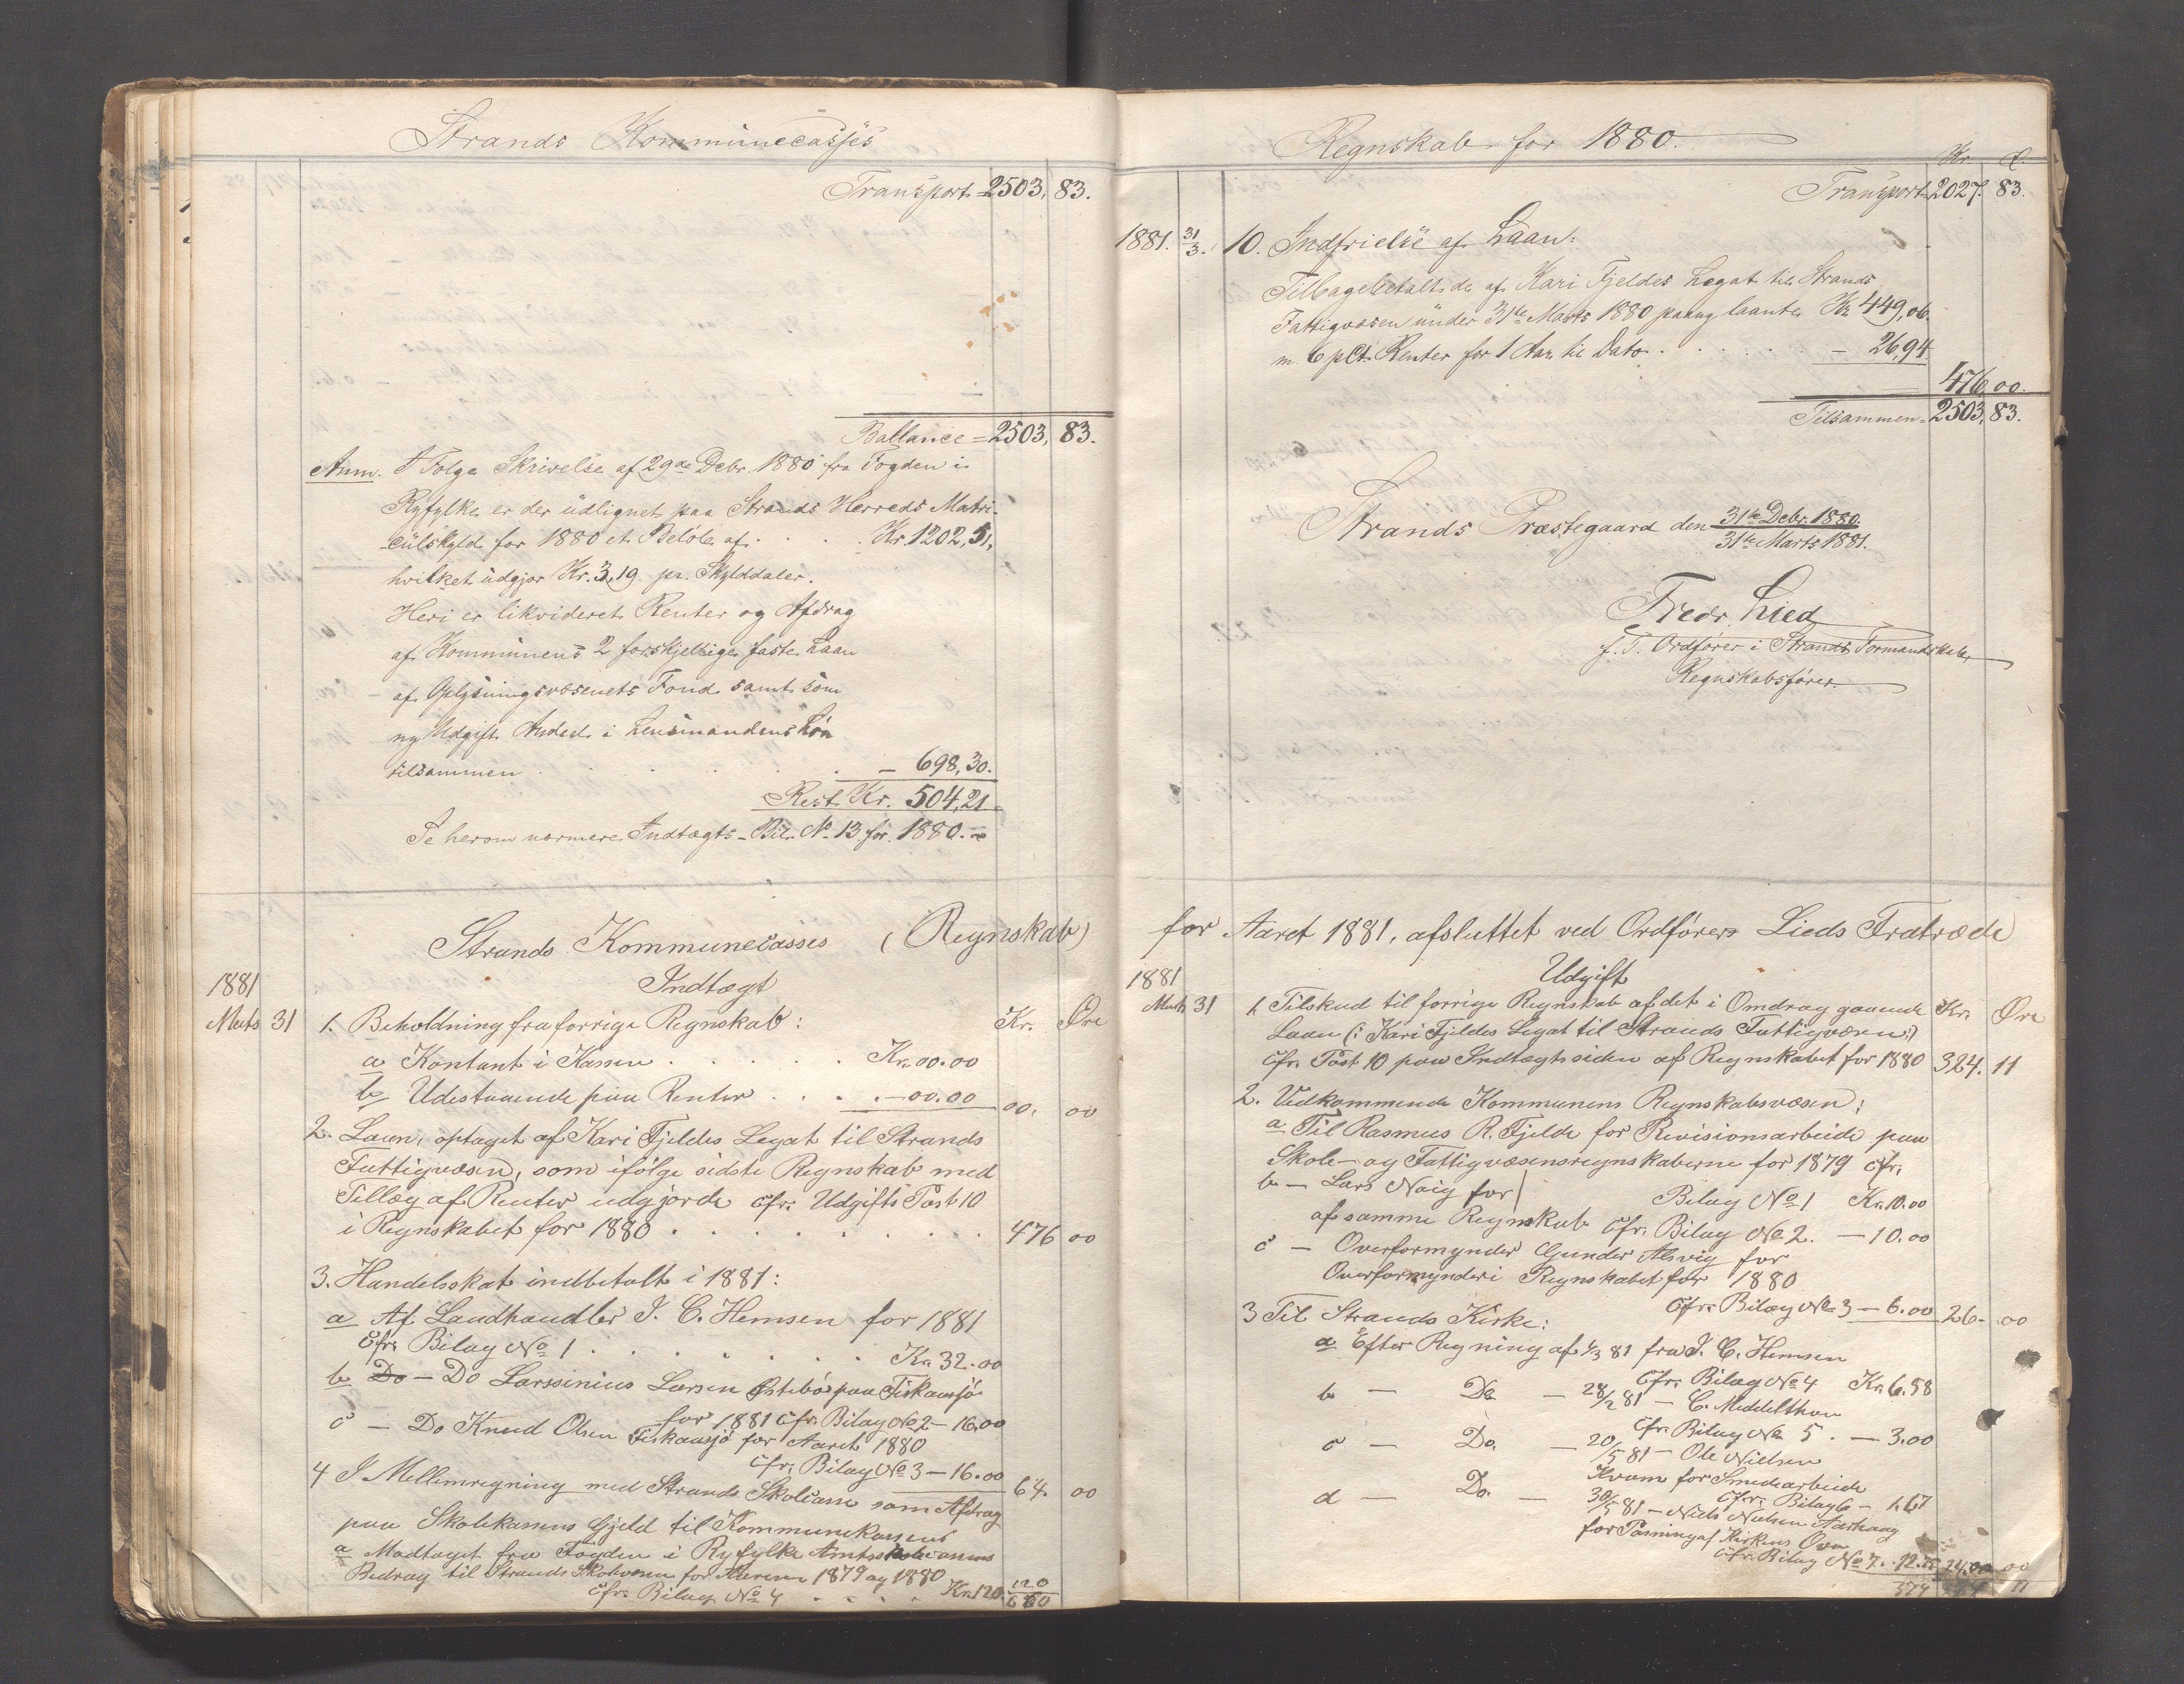 Strands Kommunecasses
Transport 2503, 83.
Ballance = 2503, 83.
Anm. I Følge Skrivelse af 29de Debr. 1880 fra Fogden i
Ryfylke er der udlignet paa Strands Herreds Matri-
culskyld for 1880 et Beløb af . . . . Kr. 1202,51,
hvilket udgjør Kr. 3,19 pr. Skylddaler.
Heri er likvideret Renter og Afdrag
af Kommunens 2 forskjellige faste Laan
af Oplysningsvæsenets Fond samt som
ny Udgift Andel i Lensmandens Løn
tilsammen . . . . . — 698,30.
Rest Kr. 504,21.
Se herom nærmere Indtægts-Bil. No. 13 for 1880.
Strands Kommunecasses (Regnskab)
1881 Indtægt
Marts 31 1. Beholdning fra forrige Regnskab: Kr. Øre
a Kontant i Kassen . . . . . Kr. 00.00
b Udestaaende paa Renter . . . . — 00.00 00. 00
2. Laan, optaget af Kari Fjeldes Legat til Strands
Fattigvæsen, som ifølge sidste Regnskab med
Tillæg af Renter udgjorde cfr. Udgifts Post 10
i Regnskabet for 1880 . . . . . . . . . 476 00
3. Handelsskat indbetalt i 1881:
a Af Landhandler J. C. Hemsen for 1881
cfr. Bilag No 1 . . . . . . . Kr. 32.00
b Do — Do Larssinius Larsen Østebø paa Fiskaasjø
for 1881 cfr. Bilag No 2 — 16.00
c — Do Knud Olsen Fiskaasjø for Aaret 1880
cfr. Bilag No 3 — 16.00 64. 00
4 I Mellemregning med Strands Skolecasse som Afdrag
paa Skolekassens Gjeld til Kommunekassens
a Modtaget fra Fogden i Ryfylke Amtsskolecassens
Bidrag til Strands Skolevæsen for Aarene 1879 og 1880
cfr. Bilag No 4 . . . . Kr. 120. 120
660
Regnskab for 1880.
Kr. Ø.
Transport 2027. 83.
1881. 31/3. 10. Indfrielse af Laan:
Tilbagebetalt de af Kari Fjeldes Legat til Strands
Fattigvæsen under 31te Marts 1880 paany laante Kr 449,06.
m. 6 pCt. Renter for 1 Aar til Dato . . . . . . — 26,94
476 00.
Tilsammen = 2503, 83.
Strands Præstegaard den 31te Debr. 1880.
31te Marts 1881.
Fredr. Lied
f. T. Ordfører i Strands Formandskab,
Regnskabsfører.
for Aaret 1881, afsluttet ved Ordfører Lieds Fratræde
1881 Udgift
Marts 31 1. Tilskud til forrige Regnskab af det i Omdrag gaaende Kr. Øre
Laan (: Kari Fjeldes Legat til Strands Fattigvæsen :)
cfr. Post 10 paa Indtægtssiden af Regnskabet for 1880 324. 11
2. Vedkommende Kommunens Regnskabsvæsen:
a Til Rasmus R. Fjelde for Revisionsarbeide paa
Skole- og Fattigvæsensregnskaberne for 1879 cfr.
Bilag No 1 Kr. 10.00
b — Lars Noig for
af samme Regnskab cfr. Bilag No 2. — 10.00
c — Overformynder Gunder Alsvig for
Overformynderi Regnskabet for 1880
cfr. Bilag No 3 — 6.00 26. 00
3 Til Strands Kirke:
a Efter Regning af 1/3 81 fra J. C. Hemsen
cfr. Bilag No 4 Kr. 6.58
b — Do — 28/2 81 — C. Middelthon
cfr. Bilag No 5 . — 3.00
c — Do. — 20/5 81 — Ole Nielsen
Kvam for Smedearbeide
cfr. Bilag 6 — 1.67
d — Do. — 30/5 81 — Niels Nielsen
for Pasning af Kirkens Ovn
cfr. Bilag No 7. . 12.75 24.00 00
374 11